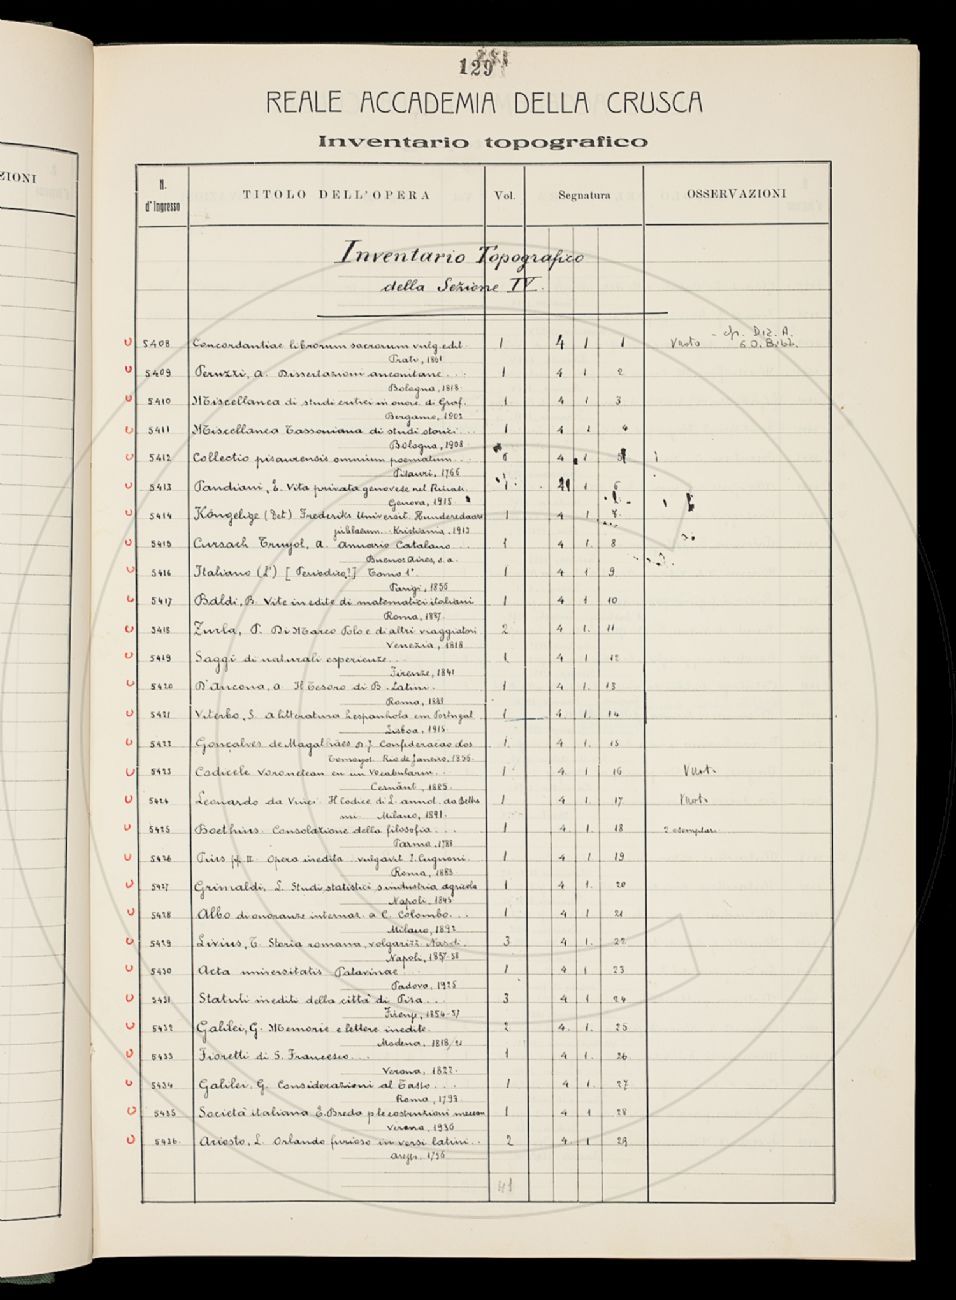 ZIONI
129
REALE ACCADEMIA DELLA CRUSCA
Inventario topografico
N. d'Ingresso TITOLO DELL'OPERA Vol. Segnatura OSSERVAZIONI
Inventario Topografico
della Sezione IV.
5408 Concordantiae librorum sacrorum vulg. edit. 1 4 1 1 Vuoto - cfr. Diz. A.
Prato, 1861 6.0. Bibl.
5409 Peruzzi, A. Dissertazioni anconitane... 1 4 1 2
Bologna, 1818
5410 Miscellanea di studi critici in onore di Graf. 1 4 1 3
Bergamo, 1903
5411 Miscellanea Tassoniana di studi storici... 1 4 1 4
Bologna, 1908
5412 Collectio pisaurensis omnium poematum... 6 4 1 5
Pisauri, 1766
5413 Pandiani, E. Vita privata genovese nel Rinasc. 1 4 1 6
Genova, 1915
5414 Kongelige (Det) Frederiks Universit. Hundredaars 1 4 1 7
jubilaeum. Kristiania, 1913
5415 Cursach Truyol, A. Annuario Catalano... 1 4 1. 8
Buenos Aires, s.a.
5416 Italiano (L') [Periodico] Tomo 1° 1 4 1 9
Parigi, 1836
5417 Baldi, B. Vite inedite di matematici italiani 1 4 1 10
Roma, 1887.
5418 Zurla, P. Di Marco Polo e di altri viaggiatori 2 4 1. 11
Venezia, 1818
5419 Saggi di naturali esperienze... 1 4 1 12
Firenze, 1841
5420 D'Ancona, A. Il Tesoro di B. Latini. 1 4 1. 13
Roma, 1888
5421 Viterbo, S. A litteratura hespanhola em Portugal 1 4 1. 14
Lisboa, 1915.
5422 Gonçalves de Magalhães D. J. Confederacao dos 1. 4 1. 15
Tamoyos. Rio de Janeiro, 1856.
5423 Codicele Voronetean cu un Vocabularin.. 1 4 1 16 Vuoto
Cernăuti, 1885.
5424 Leonardo da Vinci. Il Codice di L. annot. da Beltra 1 4 1. 17 Vuoto
mi. Milano, 1891.
5425 Boethius. Consolazione della filosofia... 1 4 1. 18 2 esemplari
Parma, 1798
5426 Pius pp. II. Opera inedita. vulgavit J. Cugnoni. 1 4 1 19
Roma, 1883
5427 Grimaldi, L. Studi statistici s. industria agricola 1 4 1. 20
Napoli, 1845
5428 Albo di onoranze internaz. a C. Colombo... 1 4 1 21
Milano, 1892
5429 Livius, T. Storia romana, volgarizz. Nardi. 3 4 1. 22
Napoli, 1857-58
5430 Acta universitatis Patavinae 1 4 1 23
Padova, 1925
5431 Statuti inediti della città di Pisa... 3 4 1 24
Firenze, 1854-57
5432 Galilei, G. Memorie e lettere inedite. 2 4. 1. 25
Modena, 1818/21
5433 Fioretti di S. Francesco... 1 4 1. 26
Verona, 1822.
5434 Galilei, G. Considerazioni al Tasso... 1 4 1. 27
Roma, 1793
5435 Società italiana E. Breda p le costruzioni meccan 1 4 1 28
Verona, 1936
5436. Ariosto, L. Orlando furioso in versi latini.. 2 4. 1 29
Arezzo, 1756
41